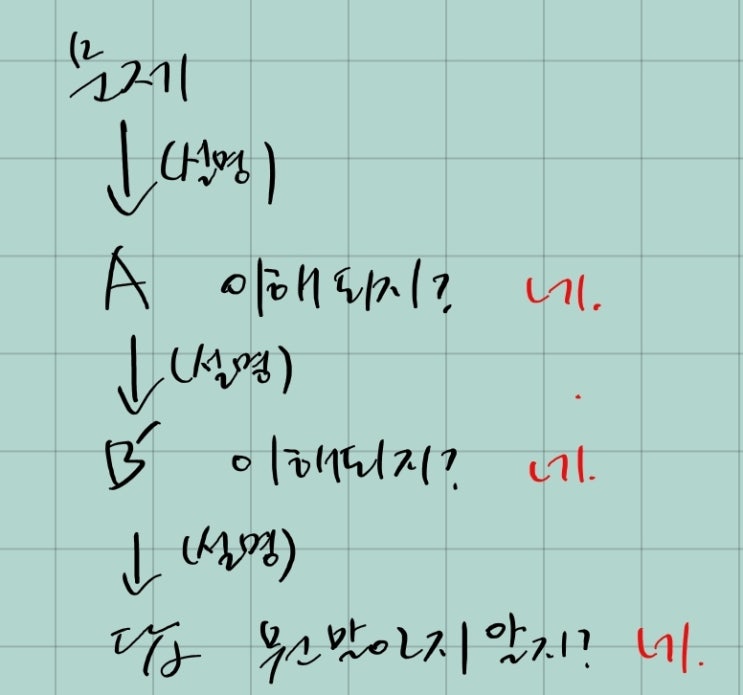 문제
(설명)
A 이해되지? 네.
(설명)
B 이해되지? 네.
(설명)
답 무슨말인지 알지? 네.